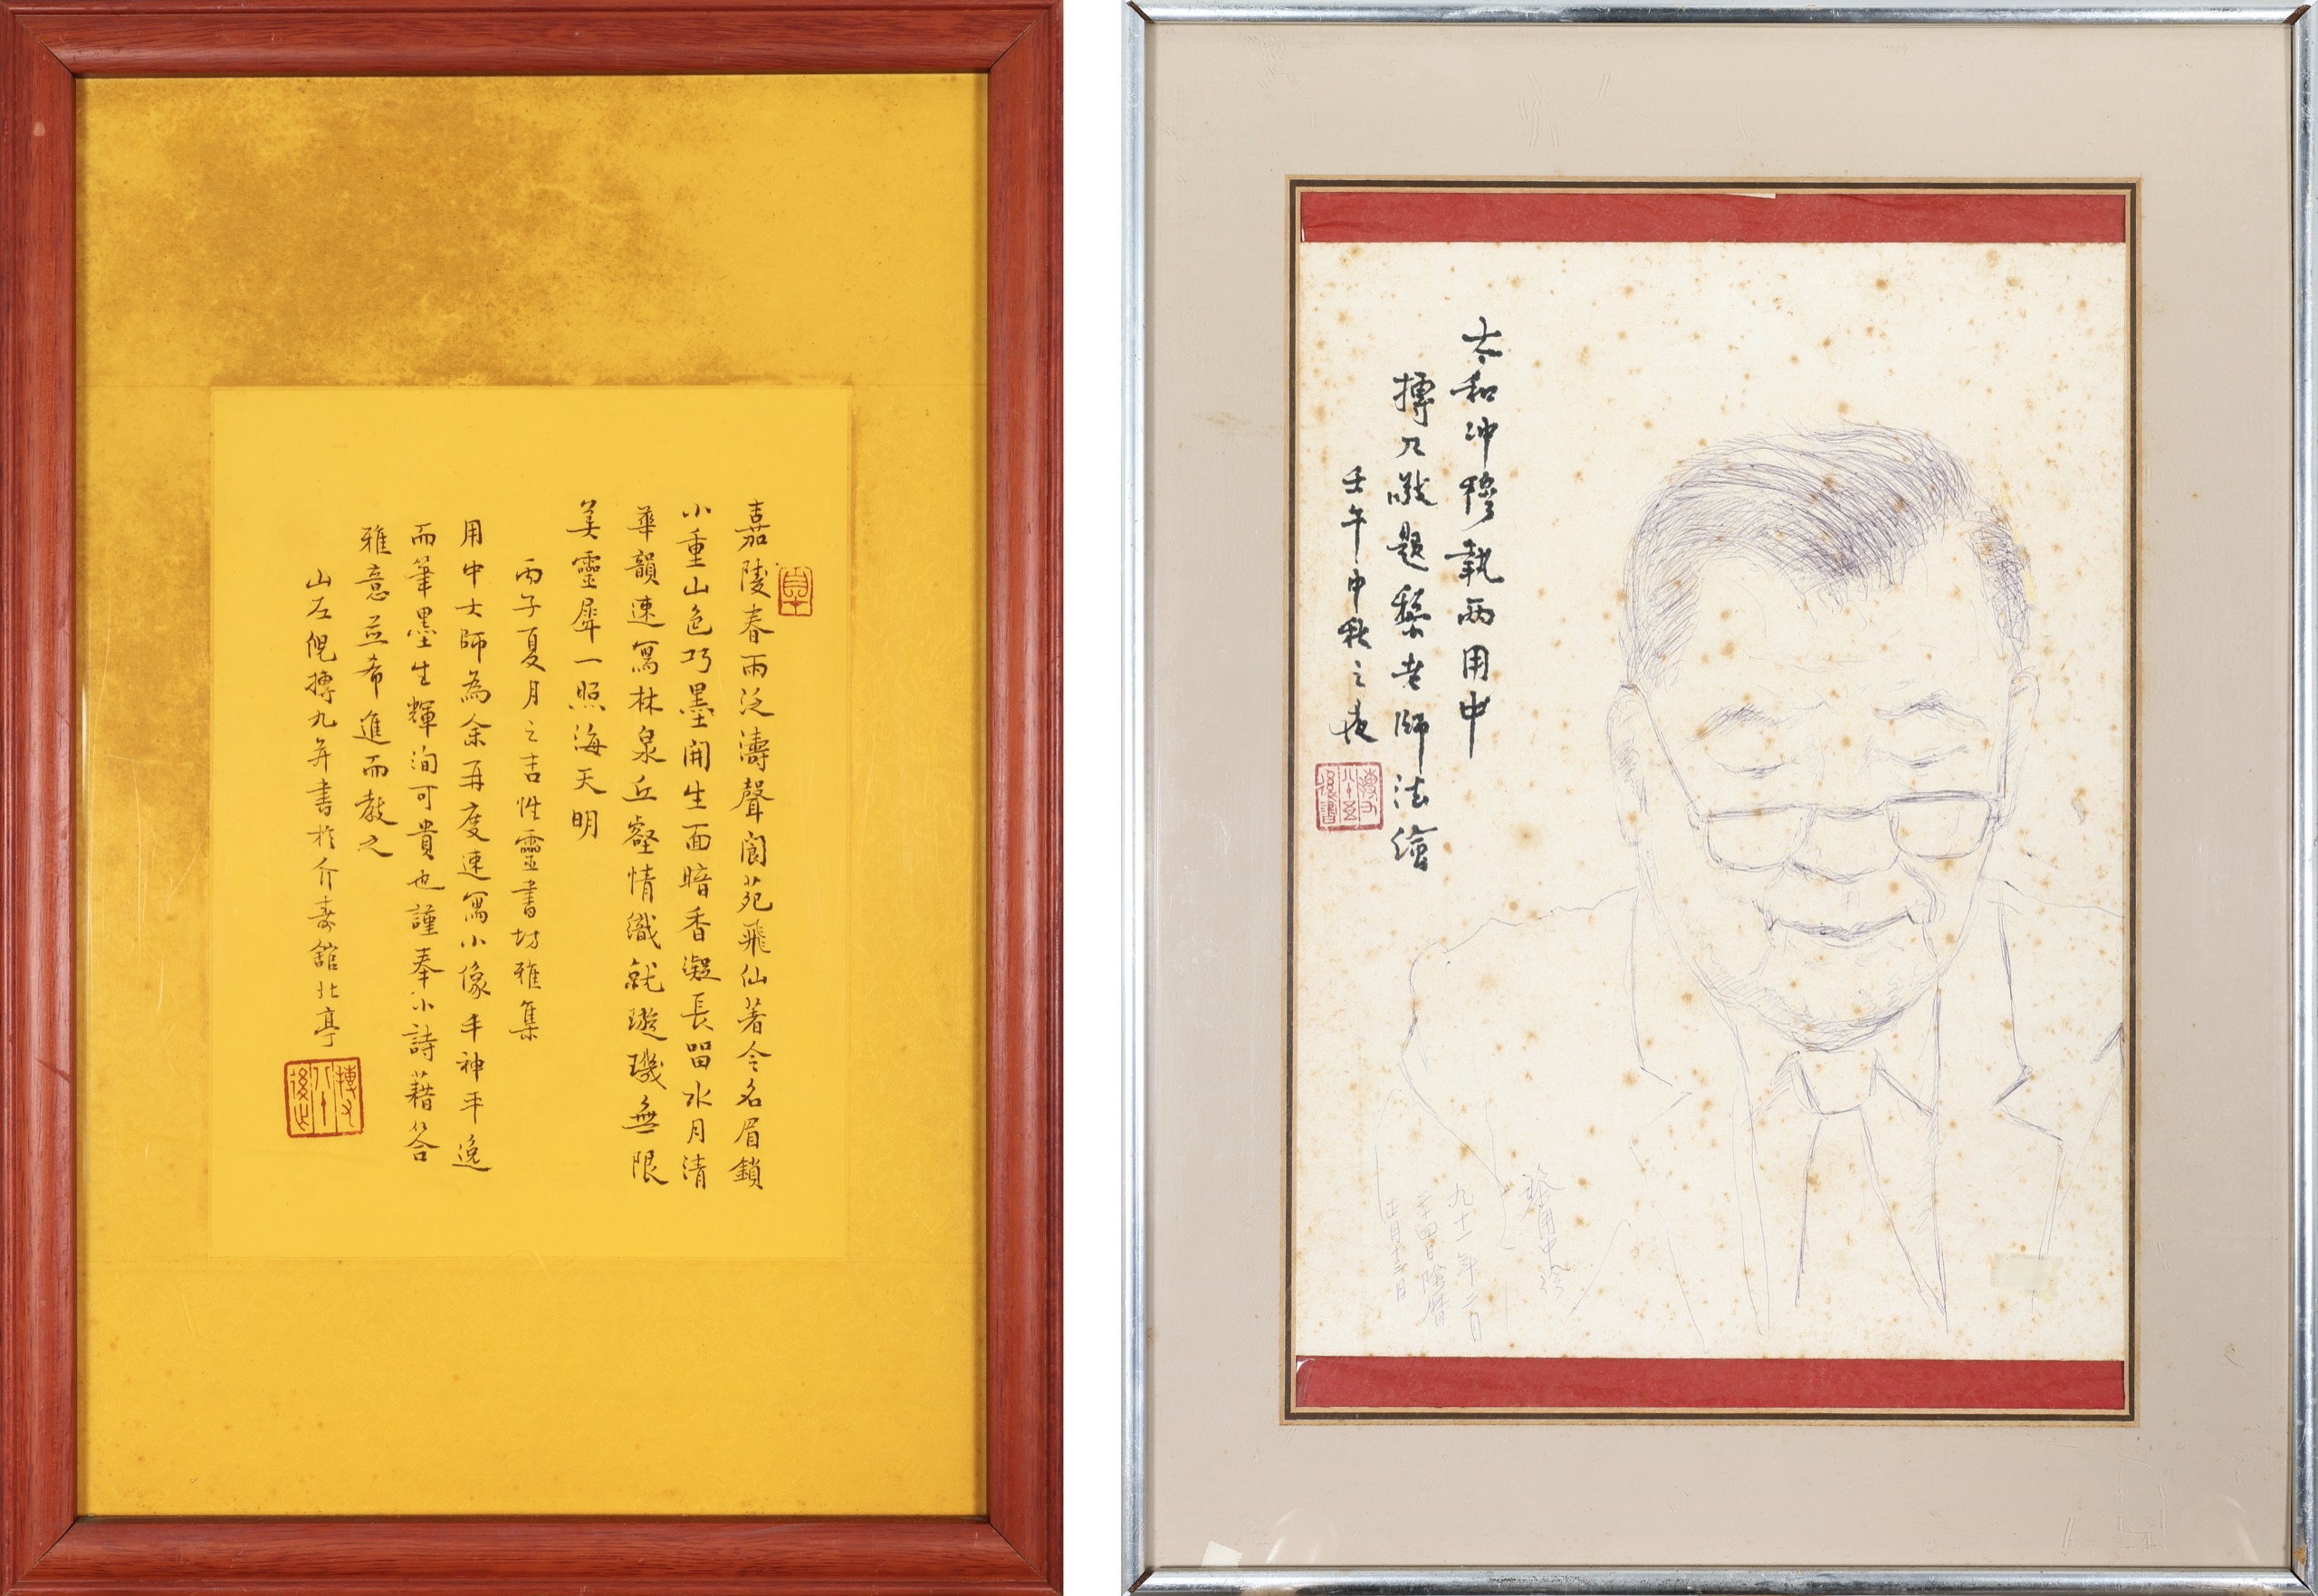 嘉陵春雨泛濤聲閬苑飛仙著令名眉鎖
小重山色巧墨開生面暗香凝長留水月清
華韻速寫林泉丘壑情織就璇璣無限
美靈犀一照海天明
丙子夏月之吉性靈書坊雅集
用中大師為余再度速寫小像丰神平逸
而筆墨生輝洵可貴也謹奉小詩藉答
雅意並希進而教之
山左倪摶九并書於介壽館北亭
摶九
八十
後作
太和冲穆執兩用中
摶九敬題黎老師法繪
壬午中秋之夜
摶九
八十五
後書
黎用中繪
九十一年二月
二十四日陰曆
正月十三日